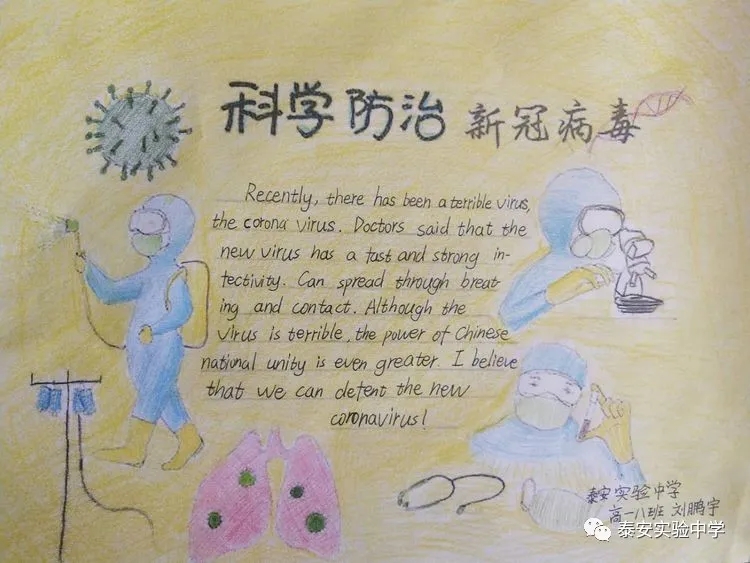 科学防治 新冠病毒
Recently, there has been a terrible virus,
the corona virus. Doctors said that the
new virus has a fast and strong in-
fectivity. Can spread through breat
ing and contact. Although the
virus is terrible, the power of Chinese
national unity is even greater. I believe
that we can defent the new
coronavirus!
泰安实验中学
高一八班 刘鹏宇
泰安实验中学